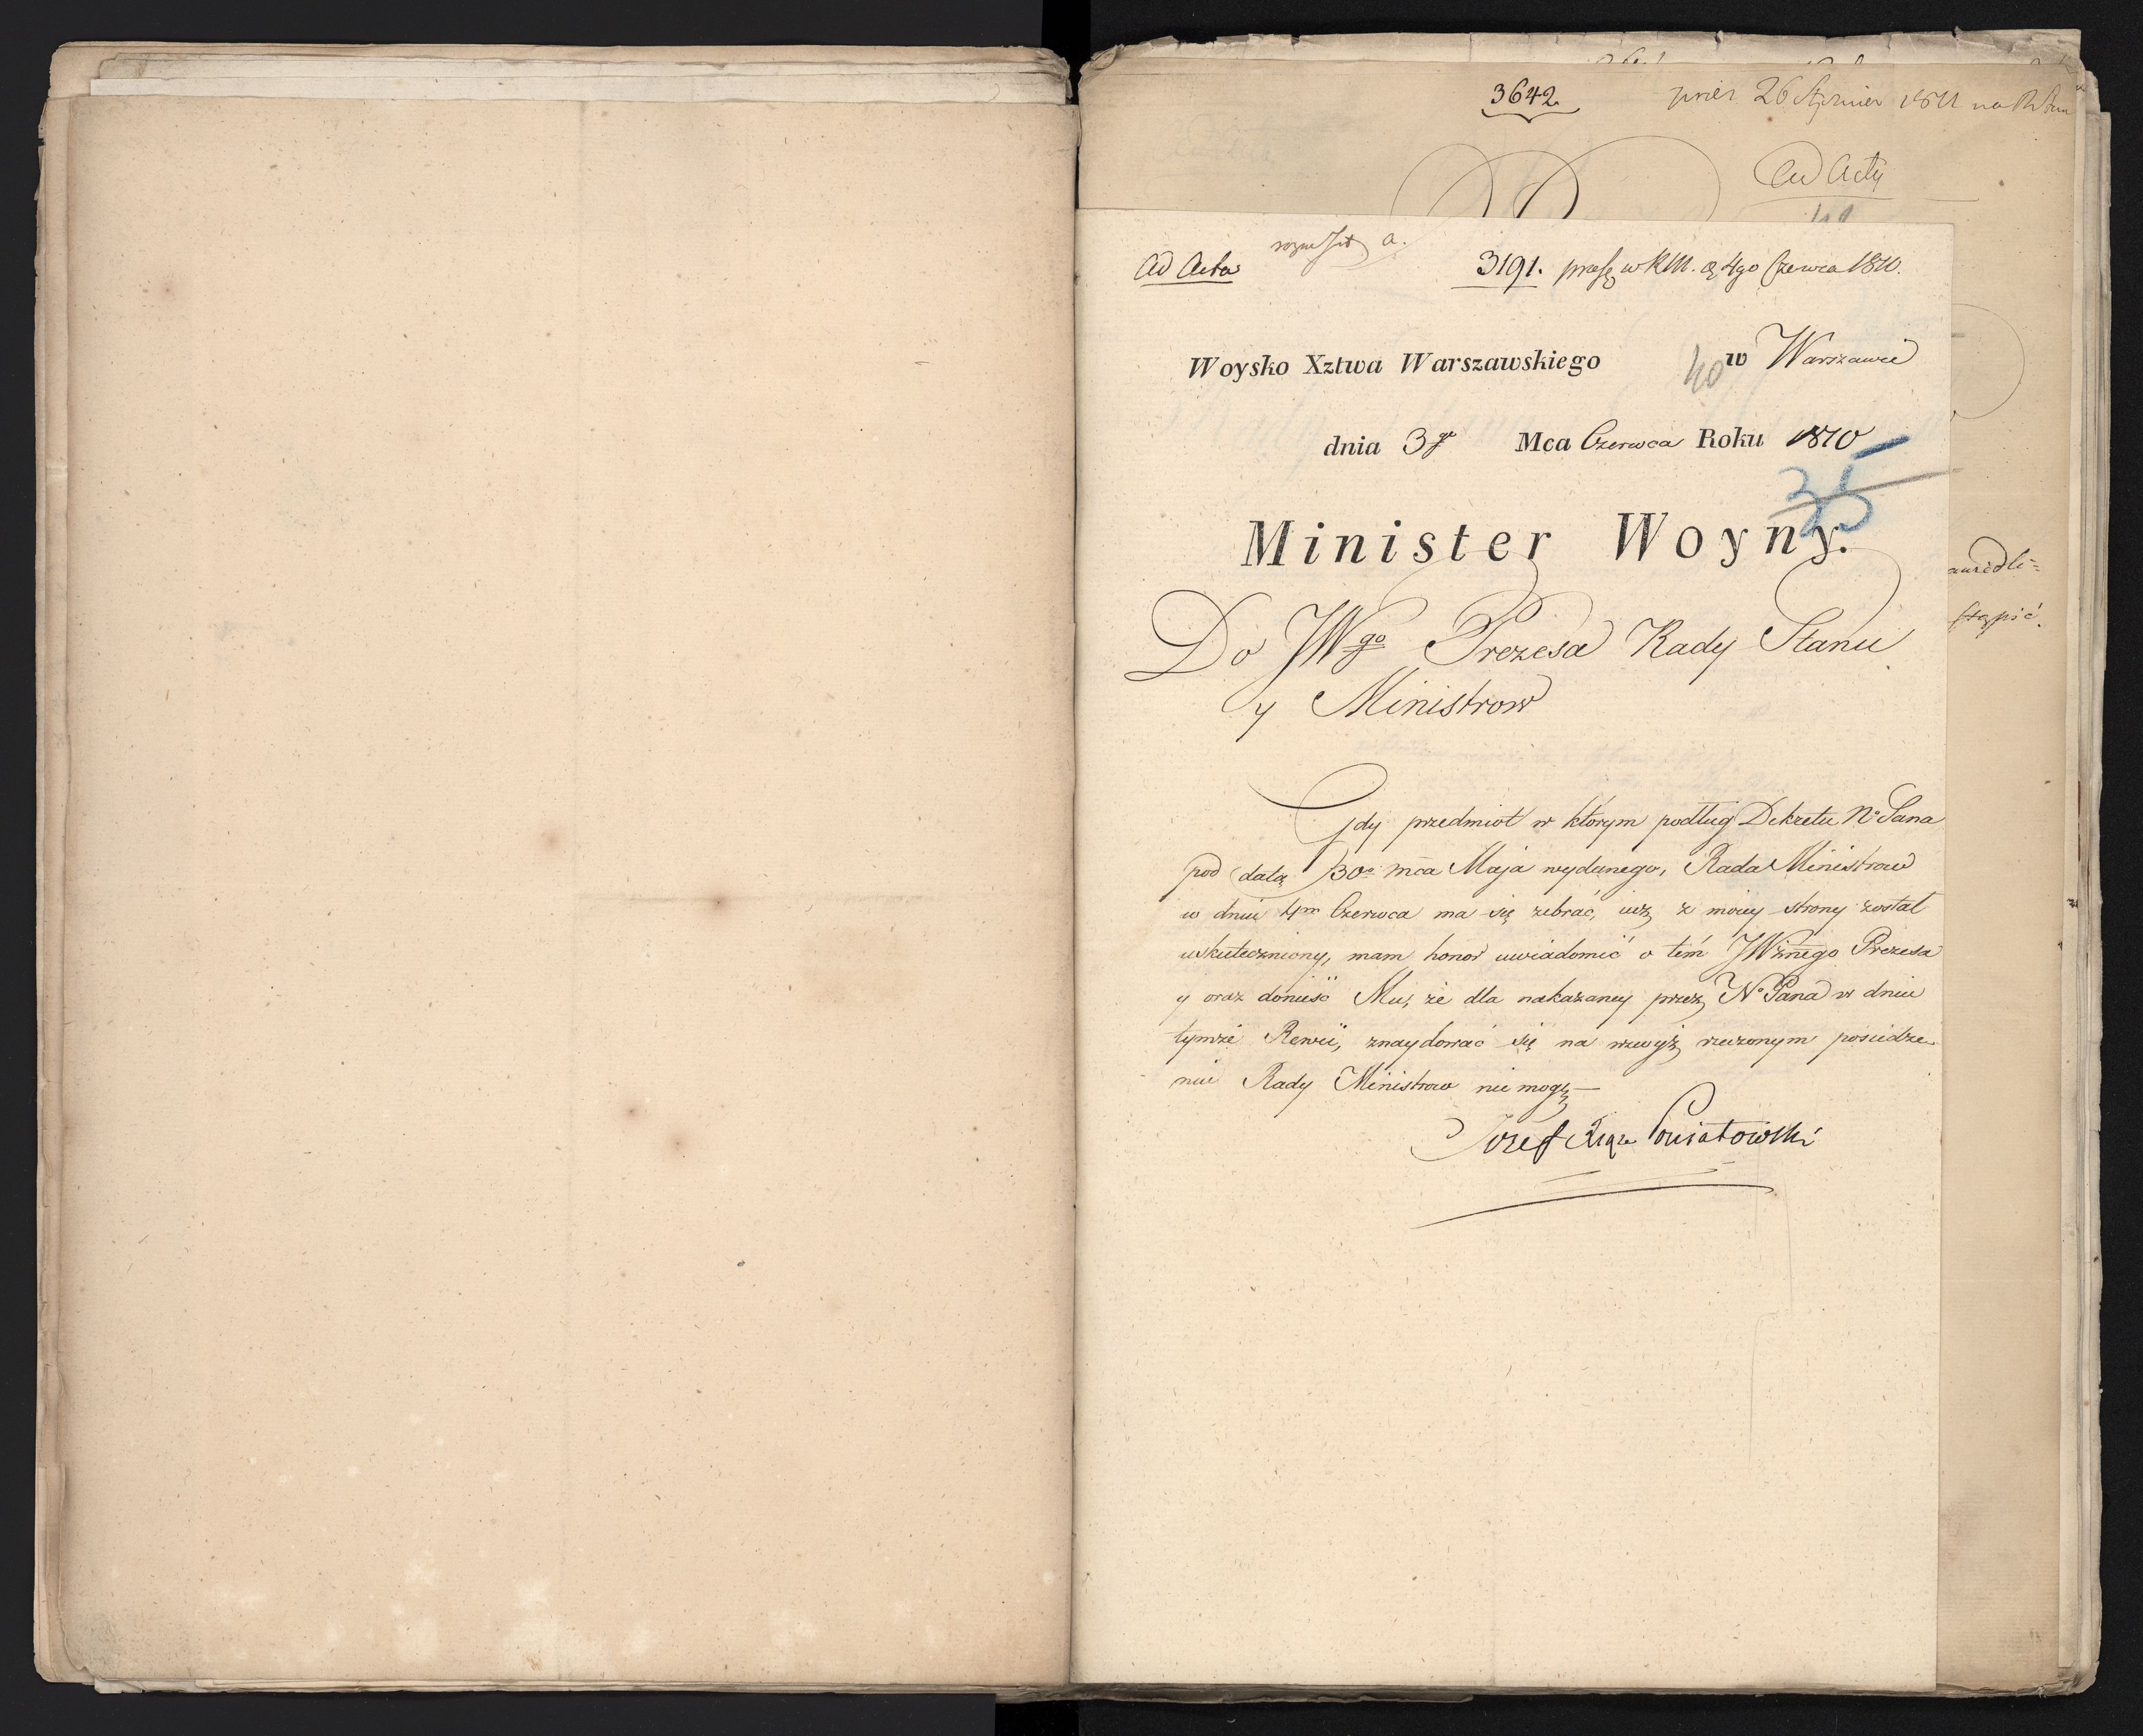 3642
26 Stycznia 1811 na
Ad Acta
Ad Acta
a.
3191. w RM. 4go Czerwca 1810.
Woysko Xztwa Warszawskiego w Warszawie
40
dnia 3go Mca Czerwca Roku 1810
35
Minister Woyny.
Do JWgo Prezesa Rady Stanu
y Ministrow
Gdy przedmiot w ktorym podług Dekretu No Pana
pod datą 30o mca Maja wydanego, Rada Ministrow
w dniu 4m Czerwca ma się zebrać, iuż z moiey strony został
uskuteczniony, mam honor uwiadomić o tem JWżnego Prezesa
y oraz donieść Mu, że dla nakazaney przez No Pana w dniu
tymże Rewii, znaydować się na wzwyż rzeczonym posiedze
niu Rady Ministrow nie mogę
Jozef Xiąże Poniatowski
stąpić.